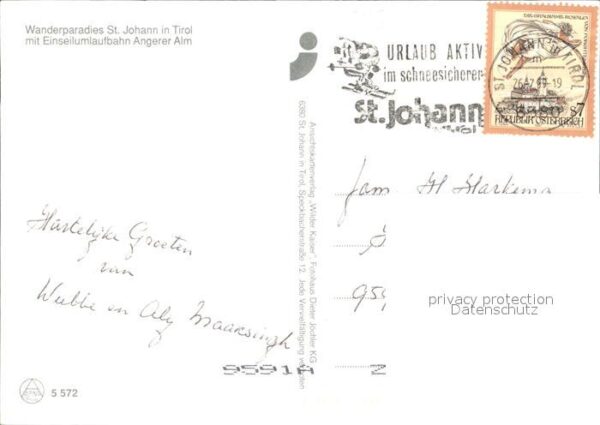 Wanderparadies St. Johann in Tirol
mit Einseilumlaufbahn Angerer Alm
URLAUB AKTIV
im schneesicheren
St. Johann
in Tirol
ST. JOHANN in TIROL
S7
REPUBLIK ÖSTERREICH
Ansichtskartenverlag „Wilder Kaiser“, Fotohaus Dieter Jöchler KG
6380 St. Johann in Tirol, Speckbacherstraße 12. Jede Vervielfältigung verboten
Fam. H Markema
959
privacy protection
Datenschutz
Hartelijke Groeten
van
Wubbe en Aly Maarsingh
9591A Z
5 572